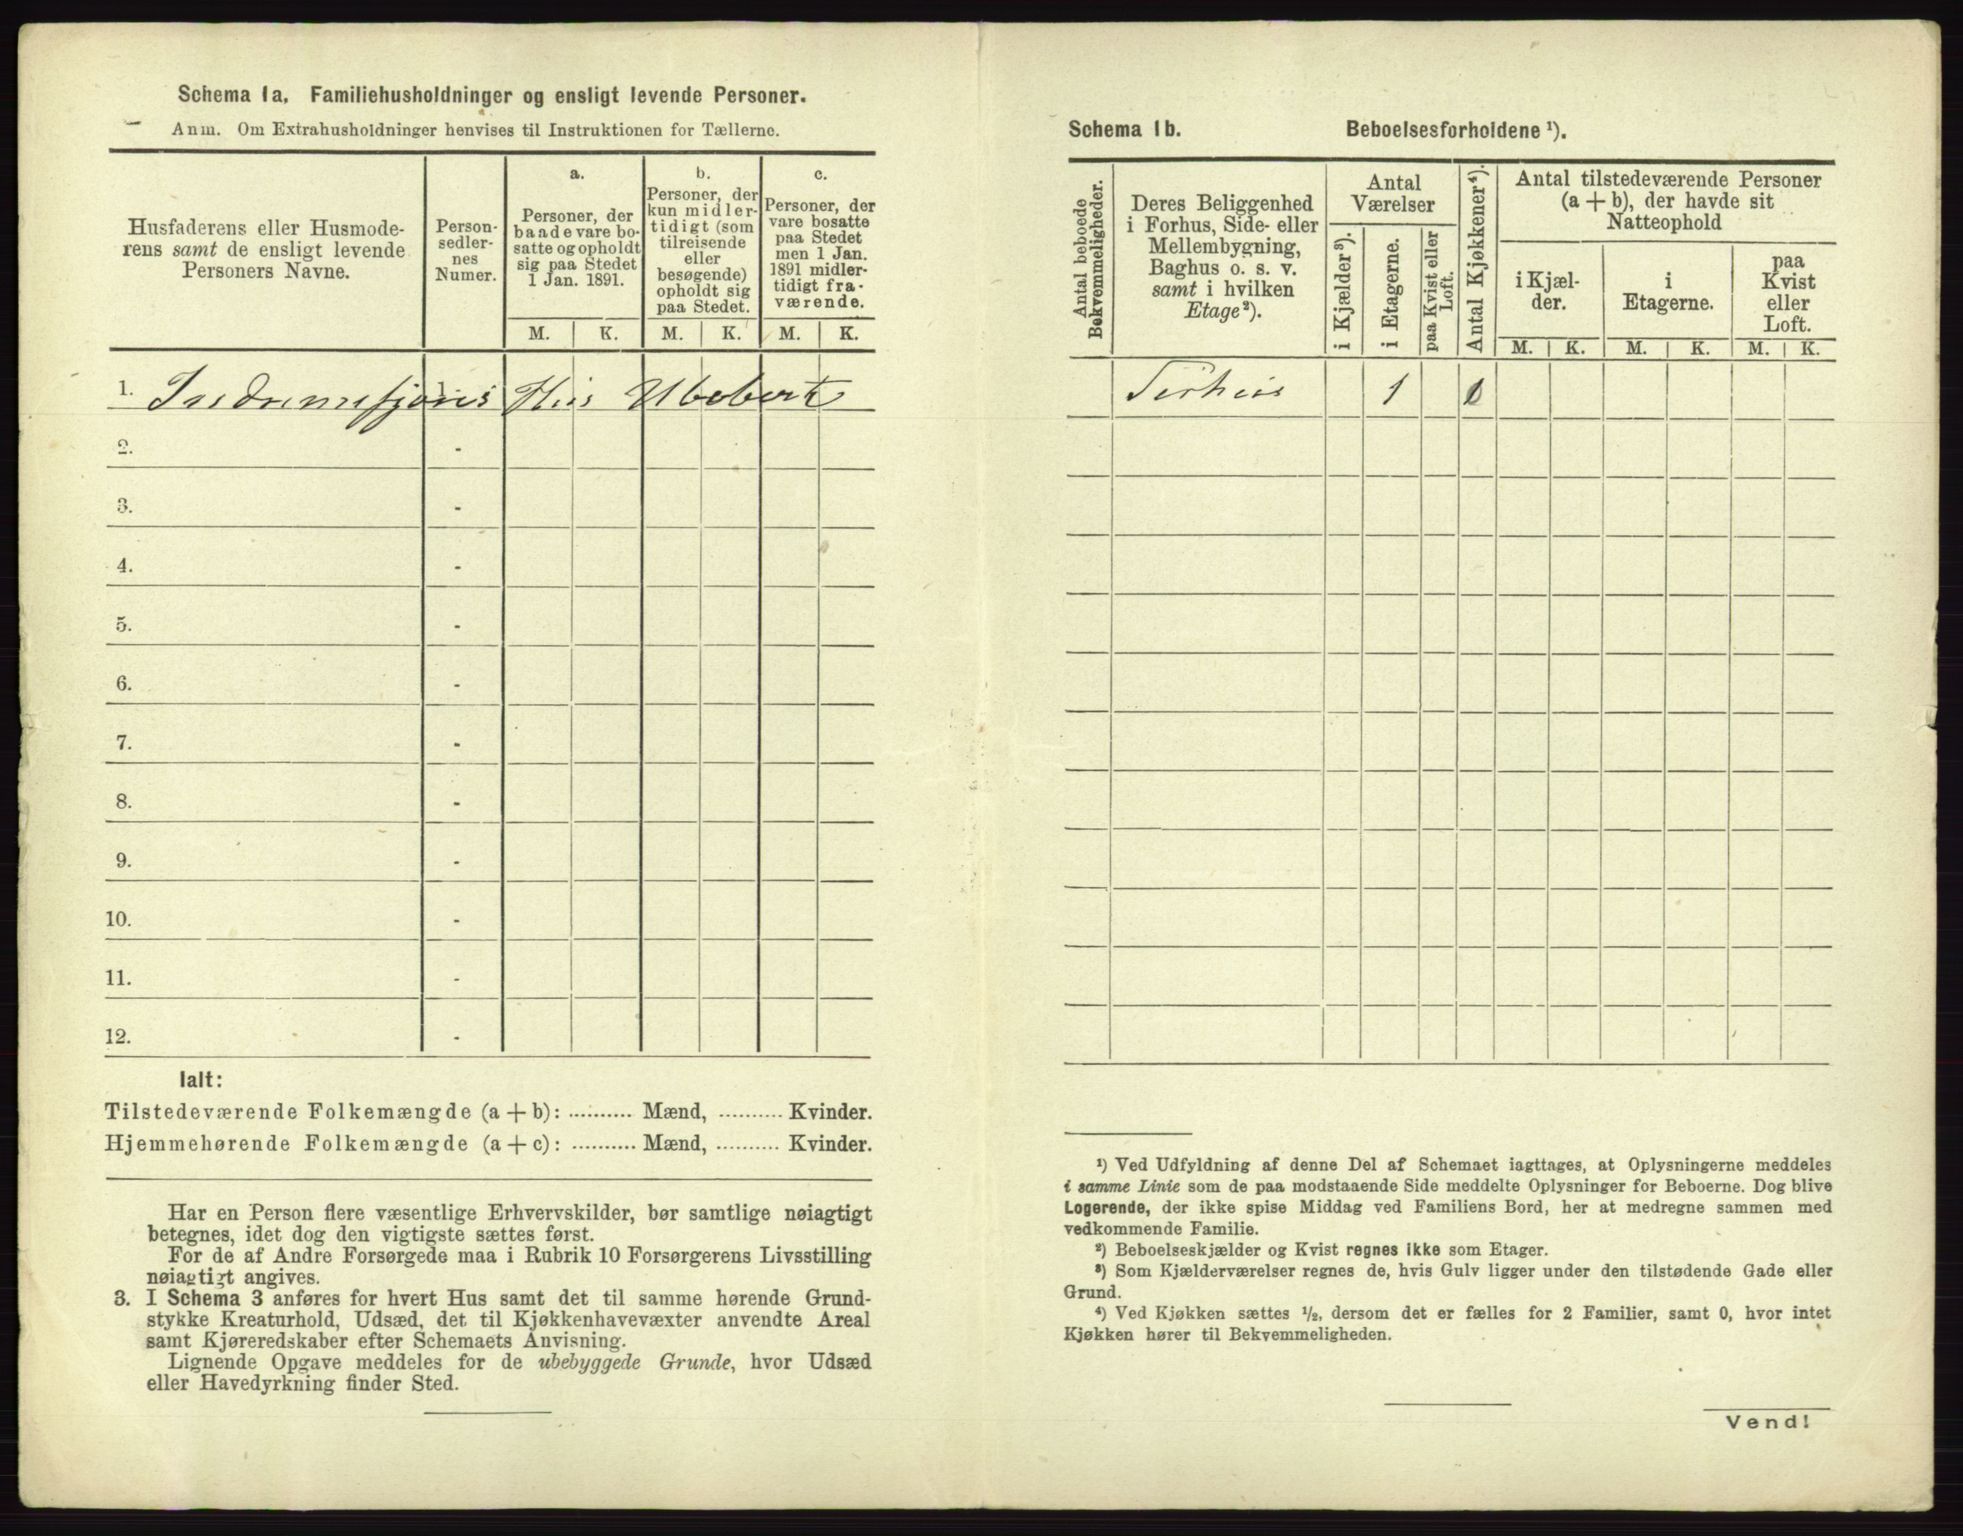 Schema 1a. Familiehusholdninger og ensligt levende Personer.
Anm. Om Extrahusholdninger henvises til Instruktionen for Tællerne.
Husfaderens eller Husmoderens samt de ensligt levende Personers Navne.
Person-sedler-nes Numer.
a.
Personer, der baade vare bosatte og opholdt sig paa Stedet 1 Jan. 1891.
b.
Personer, der kun midlertidigt (som tilreisende eller besøgende) opholdt sig paa Stedet.
c.
Personer, der vare bosatte paa Stedet men 1 Jan. 1891 midlertidigt fraværende.
M. K. M. K. M. K.
1. Hus Ubeboet
2. -
3. -
4. -
5. -
6. -
7. -
8. -
9. -
10. -
11. -
12. -
Ialt:
Tilstedeværende Folkemængde (a + b): .......... Mænd, .......... Kvinder.
Hjemmehørende Folkemængde (a + c): .......... Mænd, .......... Kvinder.
Har en Person flere væsentlige Erhvervskilder, bør samtlige nøiagtigt
betegnes, idet dog den vigtigste sættes først.
For de af Andre Forsørgede maa i Rubrik 10 Forsørgerens Livsstilling
nøiagtigt angives.
3. I Schema 3 anføres for hvert Hus samt det til samme hørende Grund-
stykke Kreaturhold, Udsæd, det til Kjøkkenhavevæxter anvendte Areal
samt Kjøreredskaber efter Schemaets Anvisning.
Lignende Opgave meddeles for de ubebyggede Grunde, hvor Udsæd
eller Havedyrkning finder Sted.
Schema 1b. Beboelsesforholdene ¹).
Antal beboede Bekvemmeligheder.
Deres Beliggenhed i Forhus, Side- eller Mellembygning, Baghus o. s. v. samt i hvilken Etage²).
Antal Værelser
i Kjælder³).
i Etagerne.
paa Kvist eller Loft.
Antal Kjøkkener⁴).
Antal tilstedeværende Personer (a + b), der havde sit Natteophold
i Kjælder.
i Etagerne.
paa Kvist eller Loft.
M. K. M. K. M. K.
1
¹) Ved Udfyldning af denne Del af Schemaet iagttages, at Oplysningerne meddeles
i samme Linie som de paa modstaaende Side meddelte Oplysninger for Beboerne. Dog blive
Logerende, der ikke spise Middag ved Familiens Bord, her at medregne sammen med
vedkommende Familie.
²) Beboelseskjælder og Kvist regnes ikke som Etager.
³) Som Kjælderværelser regnes de, hvis Gulv ligger under den tilstødende Gade eller
Grund.
⁴) Ved Kjøkken sættes ½, dersom det er fælles for 2 Familier, samt 0, hvor intet
Kjøkken hører til Bekvemmeligheden.
Vend!